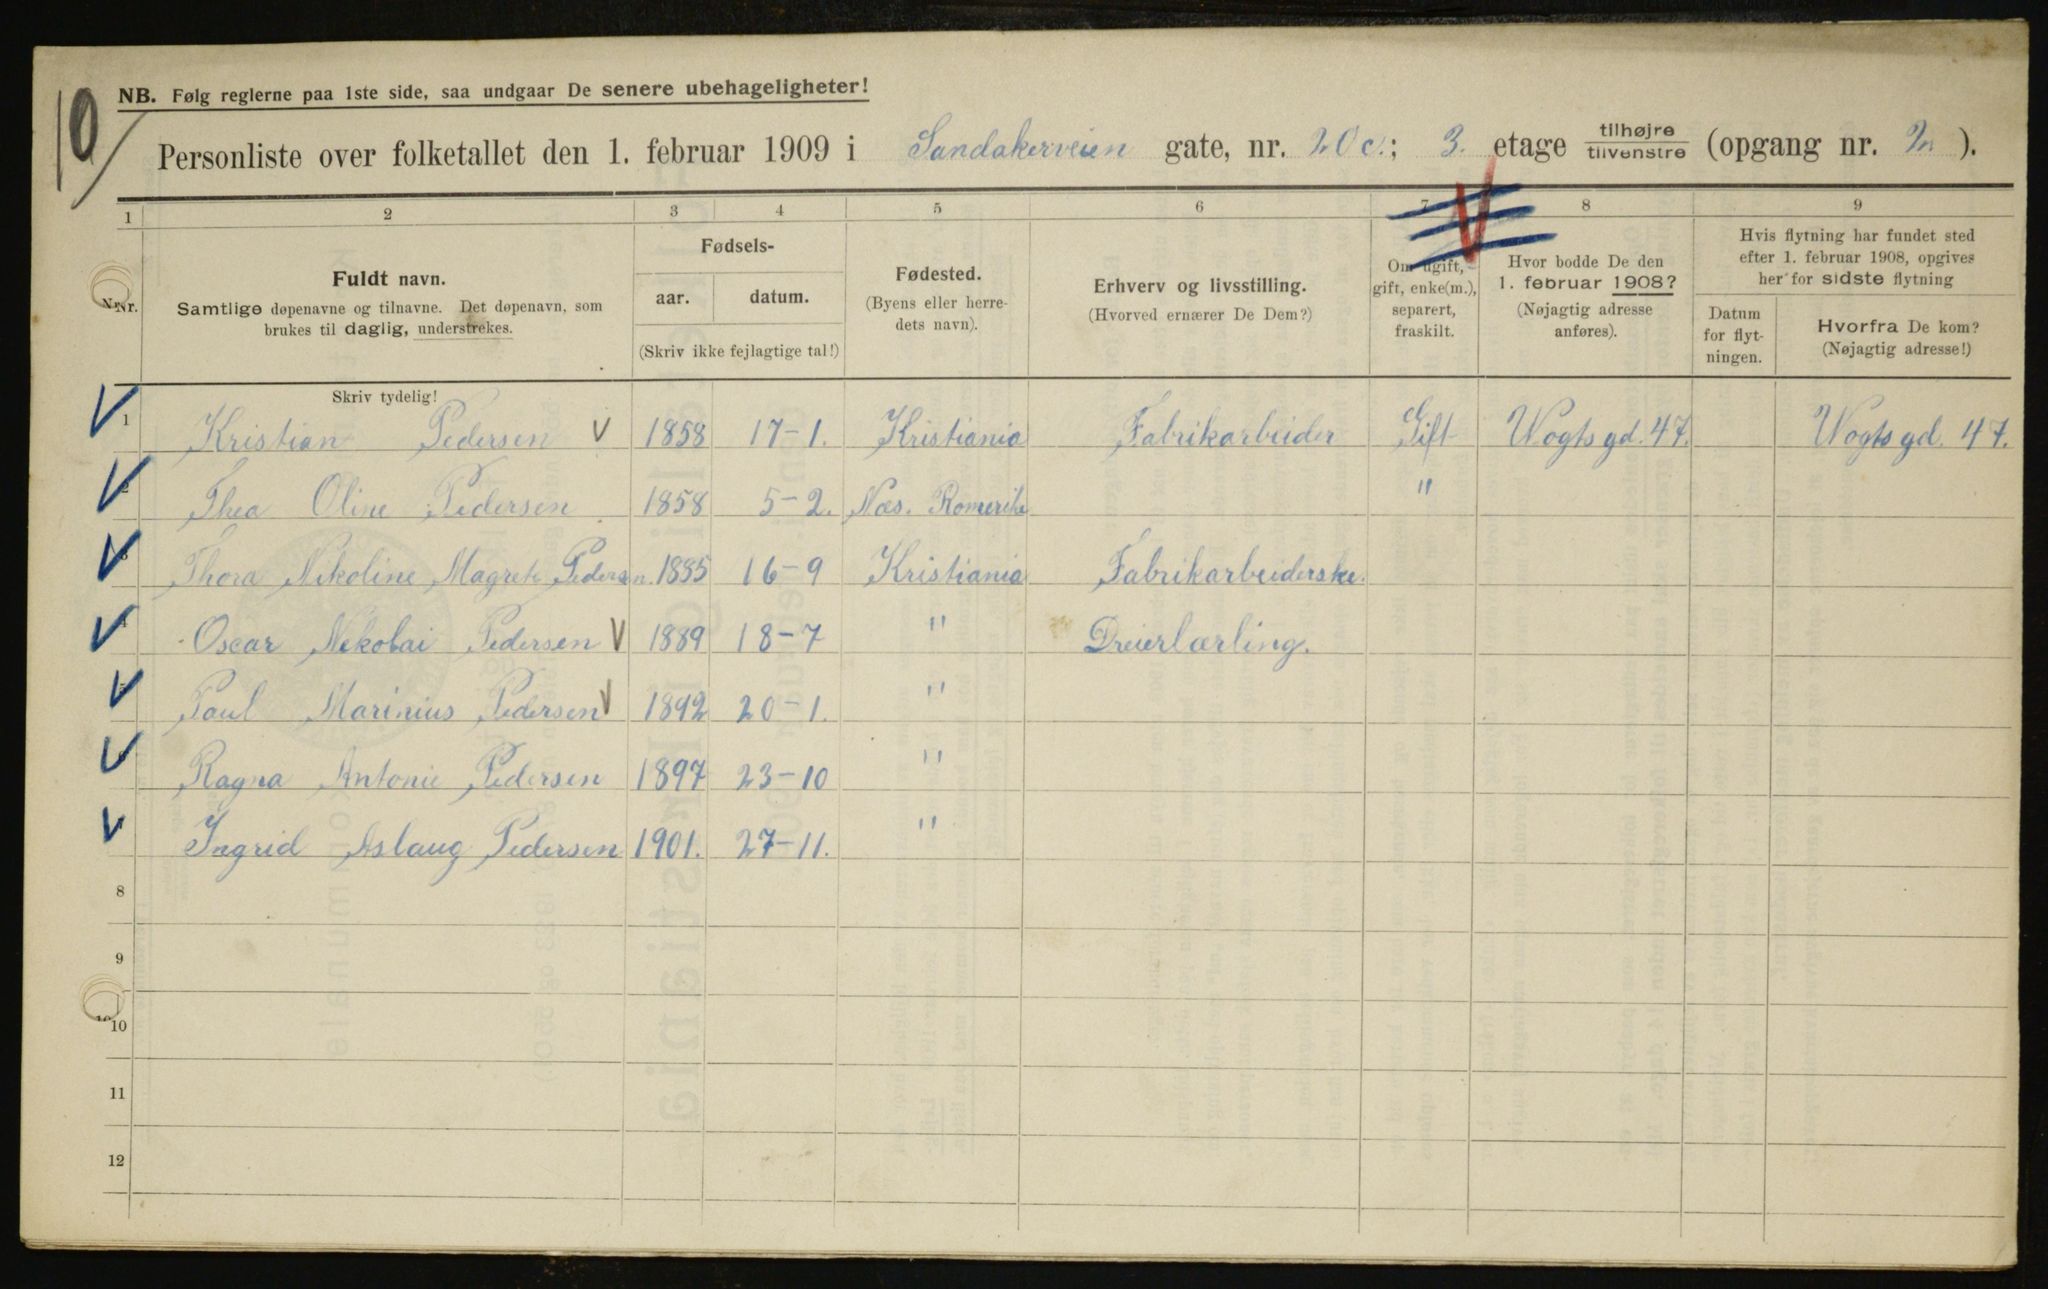 10
NB. Følg reglerne paa 1ste side, saa undgaar De senere ubehageligheter!
Personliste over folketallet den 1. februar 1909 i Sandakerveien gate, nr. 20 c.; 3. etage tilhøjre/tilvenstre (opgang nr. 2 ).
1 2 3 4 5 6 7 8 9
Nr.
Fuldt navn.
Samtlige døpenavne og tilnavne. Det døpenavn, som
brukes til daglig, understrekes.
Fødsels-
aar. datum.
(Skriv ikke fejlagtige tal!)
Fødested.
(Byens eller herre-
dets navn).
Erhverv og livsstilling.
(Hvorved ernærer De Dem?)
Om ugift,
gift, enke(m.),
separert,
fraskilt.
Hvor bodde De den
1. februar 1908?
(Nøjagtig adresse
anføres).
Hvis flytning har fundet sted
efter 1. februar 1908, opgives
her for sidste flytning
Datum
for flyt-
ningen.
Hvorfra De kom?
(Nøjagtig adresse!)
Skriv tydelig!
1 Kristian Pedersen 1858 17-1. Kristiania Fabrikarbeider Gift Wogts gd. 47. Wogts gd. 47.
2 Thea Oline Pedersen 1858 5-2. Næs. Romerike "
3 Thora Nikoline Magrete Pedersen. 1885 16-9 Kristiania Fabrikarbeiderske.
4 Oscar Nikolai Pedersen 1889 18-7 " Dreierlærling.
5 Paul Marinius Pedersen 1892 20-1. "
Ragna Antonie Pedersen 1897 23-10 "
Ingrid Aslaug Pedersen 1901. 27-11. "
8
9
10
11
12